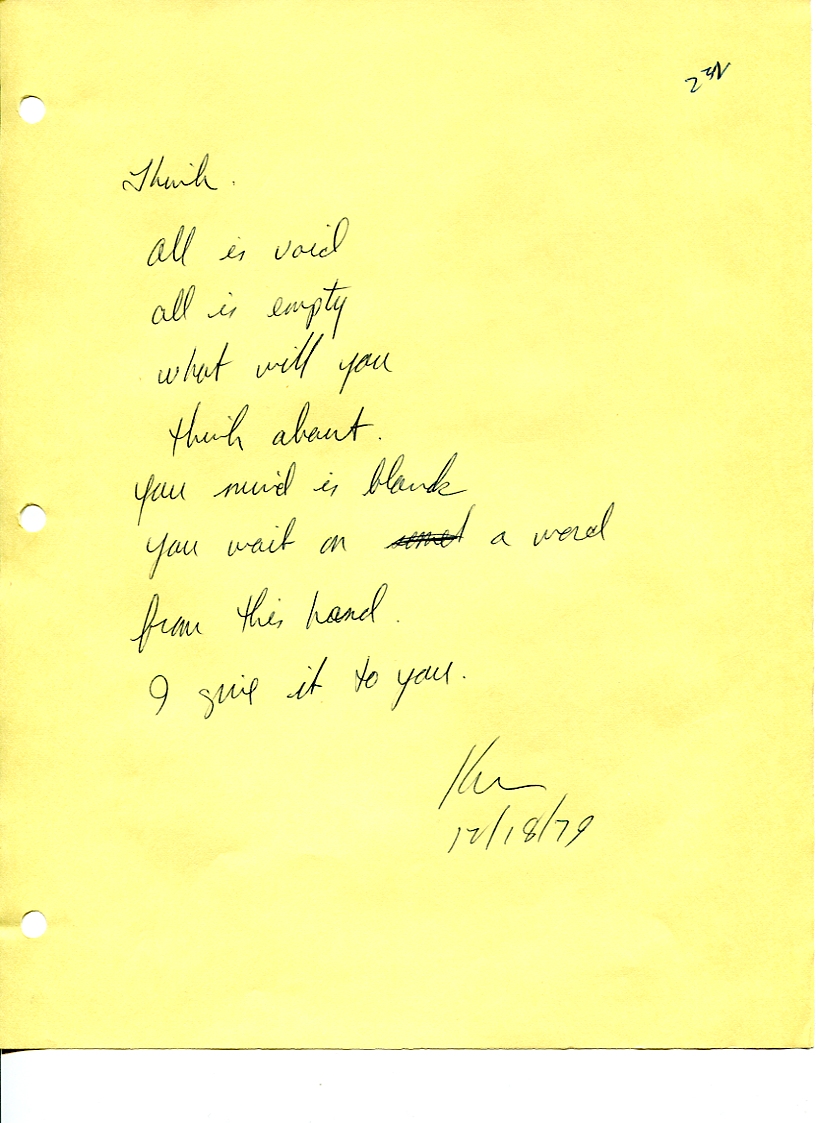 Think.
all is void
all is empty
what will you
think about.
you mind is blank
you wait on a word
from this hand.
I give it to you.
12/18/79